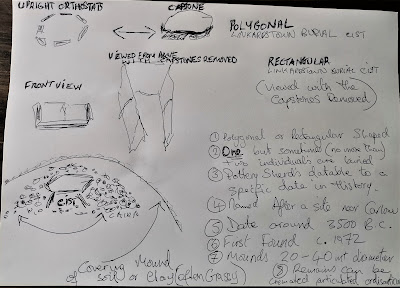 UPRIGHT ORTHOSTATS
CAPSTONE
POLYGONAL
LINKARDSTOWN BURIAL CIST
VIEWED FROM ABOVE
CAPSTONES REMOVED
RECTANGULAR
LINKARDSTOWN BURIAL CIST
(Viewed with the
Capstones Removed)
FRONT VIEW
① Polygonal or Rectangular Shaped
② One but sometimes (no more than)
two individuals are buried
③ Pottery Sherds datable to a
specific date in History.
④ Named After a site near Carlow
⑤ Date around 3500 B.C.
⑥ First found c. 1972
⑦ Mounds 20-40 mt diameter
⑧ Remains can be
cremated articulated
CIST
CAIRN
Covering Mound
of soil or Clay (often Grassy)